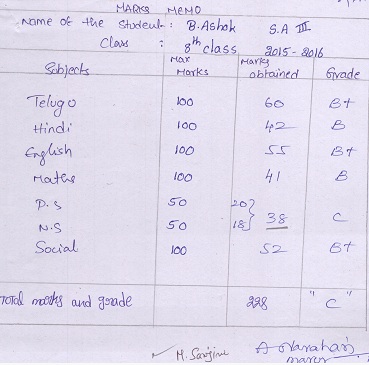 MARKS MEMO
Name of the Student: B. Ashok S.A III
Class : 8th class 2015-2016
Subjects Max Marks Marks obtained Grade
Telugo 100 60 B+
Hindi 100 42 B
English 100 55 B+
Maths 100 41 B
P.S 50 20
38 C
N.S 50 18
Social 100 52 B+
Total marks and grade 228 "C"
M. Sarojini